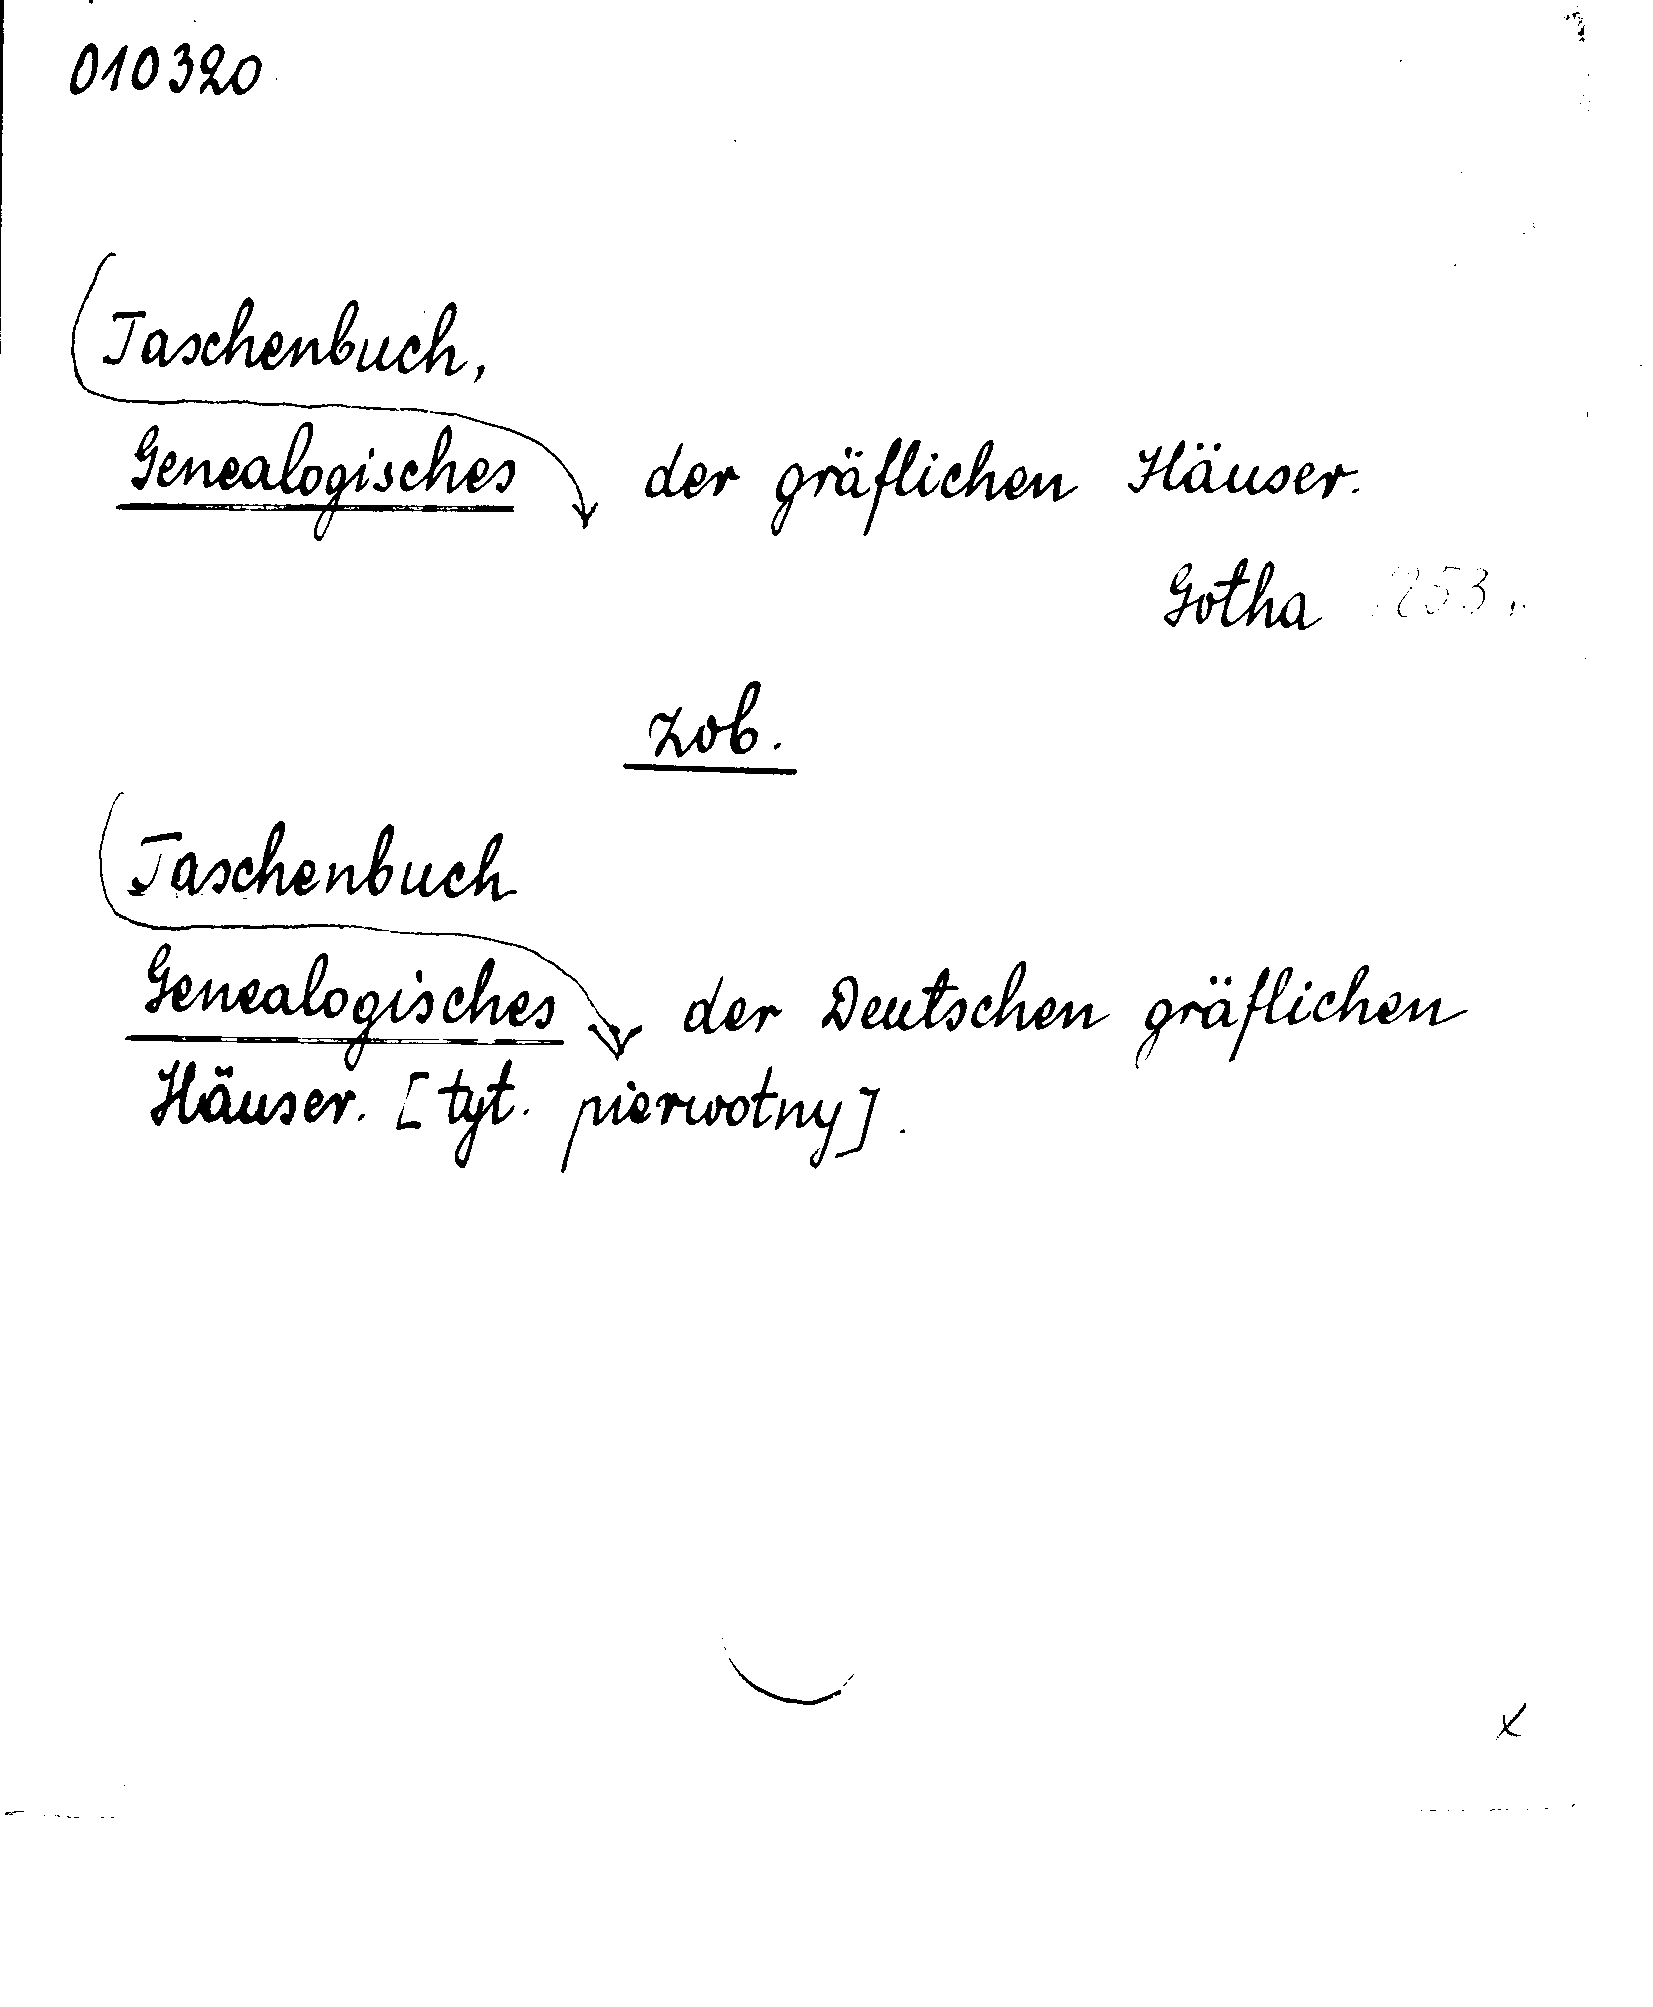 010320
Taschenbuch,
Genealogisches der gräflichen Häuser.
Gotha
zob.
Taschenbuch
Genealogisches der Deutschen gräflichen
Häuser. [tyt. pierwotny].
x